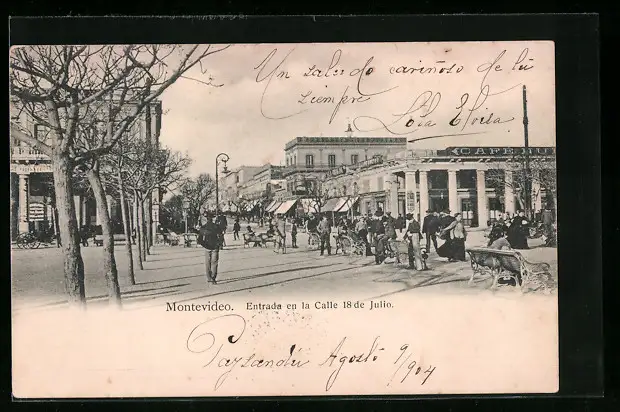 Un saludo cariñoso de tú
siempre Lola Eloisa
CAFE
Montevideo. Entrada en la Calle 18 de Julio.
Paysandú Agosto 9/904